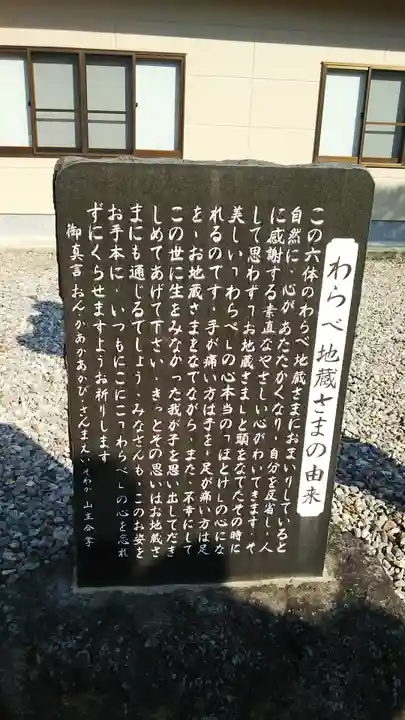 わらべ地蔵さまの由来
この六体のわらべ地蔵さまにおまいりしていると
自然に、心があたたかくなり、自分を反省し、人
に感謝する素直なやさしい心がわいてきます、そ
して思わず「お地蔵さま」と頭をなでたその時に
美しい「わらべ」の心本当の「ほとけ」の心にな
れるのです、手が痛い方は手を、足が痛い方は足
を、お地蔵さまをなでながら、また、不幸にして
この世に生をみなかった我が子を思い出してだき
しめてあげて下さい、きっとその思いはお地蔵さ
まにも通じるでしょう、みなさんも、このお姿を
お手本に、いつもにこにこ「わらべ」の心を忘れ
ずにくらせますようお祈りします
御真言 おん、かあかあかび、さんまえい、そわか 山主合掌